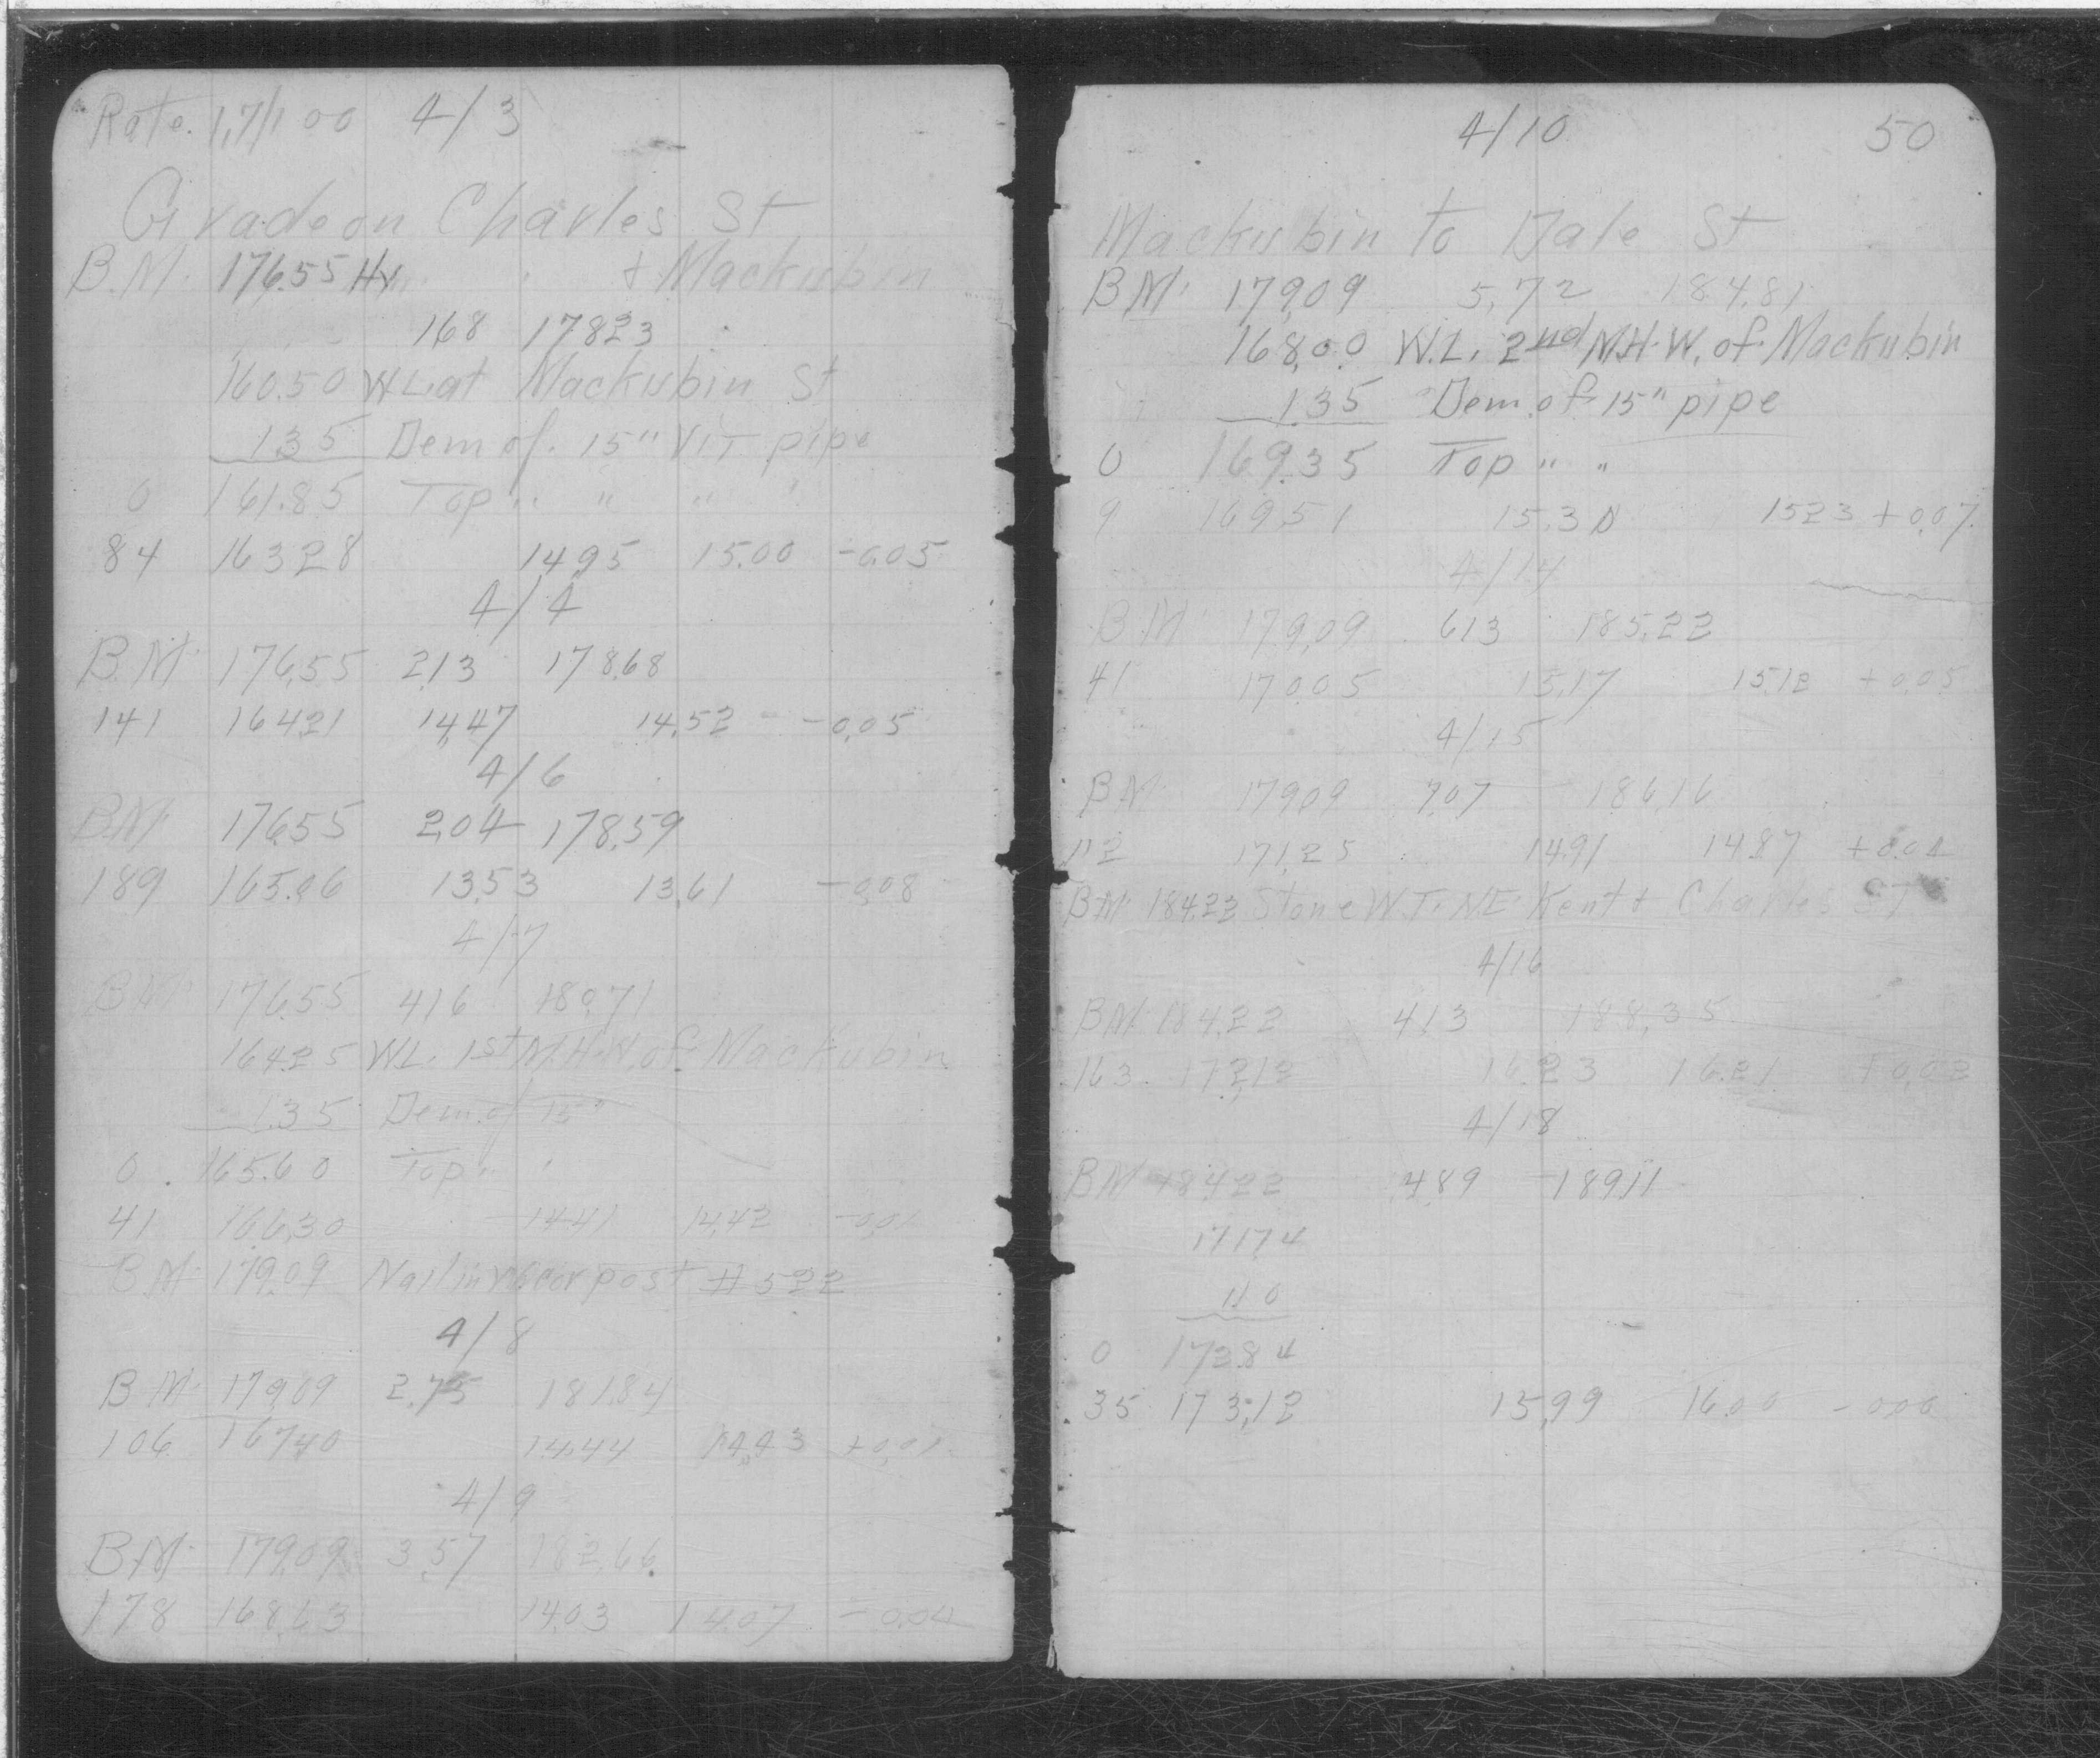 Rate. 1,7/100 4/3
Grade on Charles St
B.M. 176.55 Hy. & Mackubin
168 178.23
160.50 W.L. at Mackubin St
1.35 Dem of. 15" Vit pipe
0 161.85 Top " " " "
84 163.28 14.95 15.00 -0.05
4/4
B.M. 176.55 2.13 178.68
141 164.21 14.47 14.52 -0.05
4/6
B.M. 176.55 2.04 178.59
189 165.06 13.53 13.61 -0.08
4/7
B.M. 176.55 4.16 180.71
164.25 W.L. 1st M.H. W. of Mackubin
1.35 Dem. of 15"
0 165.60 Top " "
41 166.30 14.41 14.42 -0.01
B.M. 179.09 Nail in cor post # 522
4/8
B.M. 179.09 2.75 181.84
106 167.40 14.44 14.43 +0.01
4/9
B.M. 179.09 3.57 182.66
178 168.63 14.03 14.07 -0.04
4/10 50
Mackubin to Dale St
B.M. 179.09 5.72 184.81
168.00 W.L. 2nd M.H. W. of Mackubin
1.35 Dem. of 15" pipe
0 169.35 Top " "
9 169.51 15.30 15.23 +0.07
4/14
B.M. 179.09 6.13 185.22
41 170.05 15.17 15.12 +0.05
4/15
B.M. 179.09 7.07 186.16
112 171.25 14.91 14.87 +0.04
B.M. 184.22 Stone W.T. N.E. Kent & Charles ST
4/16
B.M. 184.22 4.13 188.35
163 172.12 16.23 16.21 +0.02
4/18
B.M. 184.22 4.89 189.11
171.74
1.10
0 172.84
35 173.12 15.99 16.00 -0.00